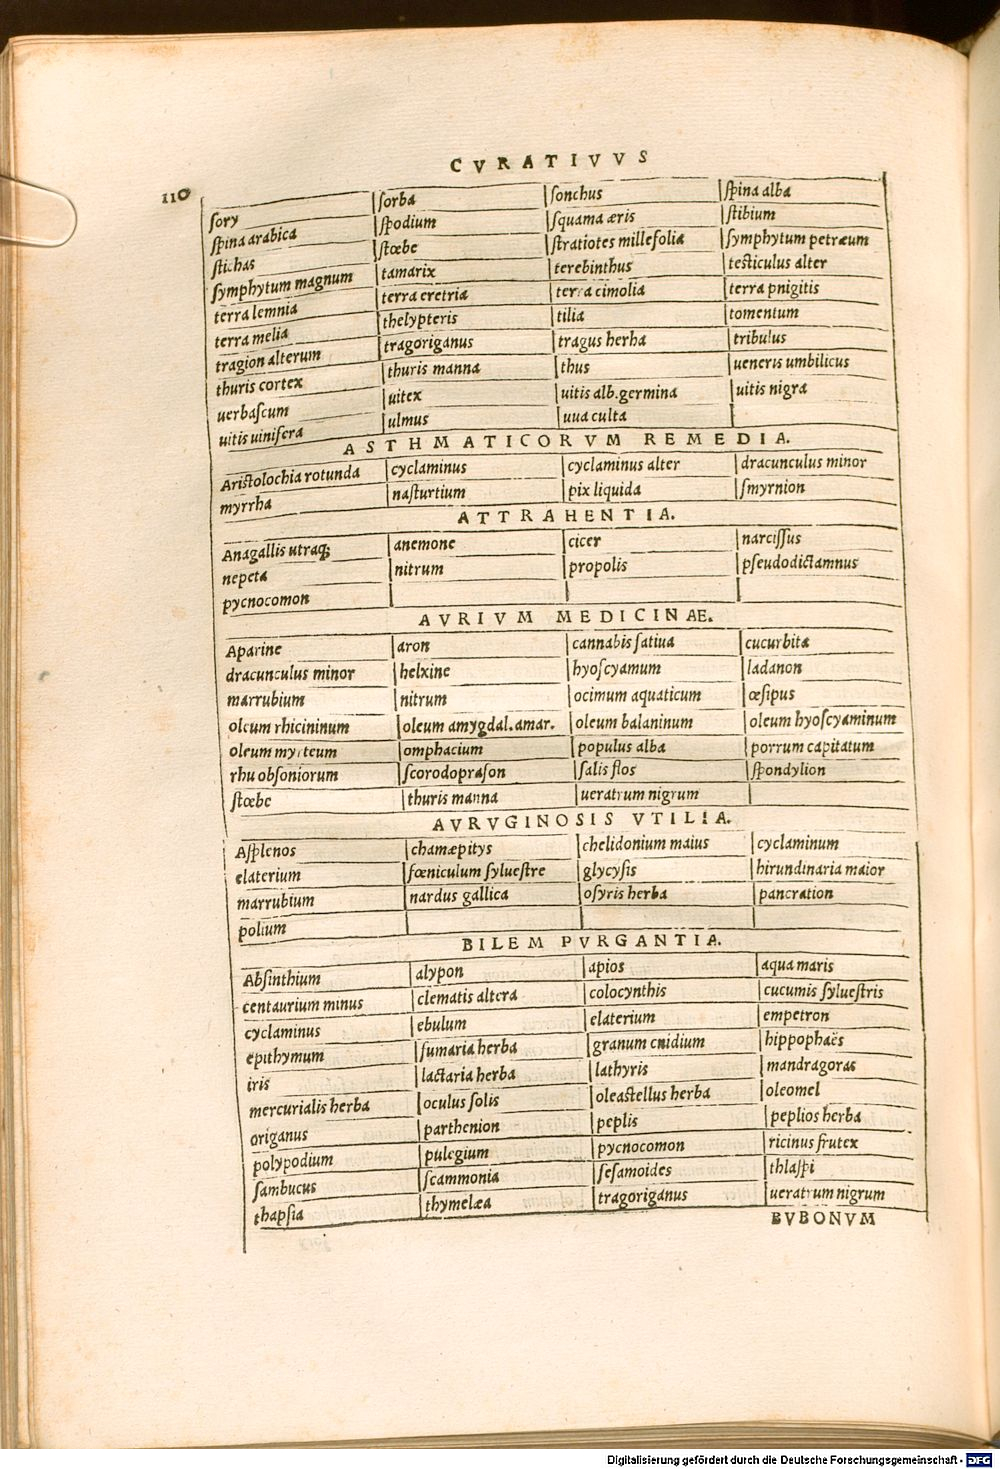 CVRATIVVS
110
ſory ſorba ſonchus ſpina alba
ſpina arabica ſpodium ſquama æris ſtibium
ſtichas ſtœbe ſtratiotes millefolia ſymphytum petræum
ſymphytum magnum tamarix terebinthus teſticulus alter
terra lemnia terra eretria terra cimolia terra pnigitis
terra melia thelypteris tilia tomentum
tragion alterum tragoriganus tragus herba tribulus
thuris cortex thuris manna thus ueneris umbilicus
uerbaſcum uitex uitis alb.germina uitis nigra
uitis uinifera ulmus uua culta
ASTHMATICORVM REMEDIA.
Ariſtolochia rotunda cyclaminus cyclaminus alter dracunculus minor
myrrha naſturtium pix liquida ſmyrnion
ATTRAHENTIA.
Anagallis utraq; anemone cicer narciſſus
nepeta nitrum propolis pſeudodictamnus
pycnocomon
AVRIVM MEDICINAE.
Aparine aron cannabis ſatiua cucurbita
dracunculus minor helxine hyoſcyamum ladanon
marrubium nitrum ocimum aquaticum œſipus
oleum rhicininum oleum amygdal.amar. oleum balaninum oleum hyoſcyaminum
oleum myrteum omphacium populus alba porrum capitatum
rhu obſoniorum ſcorodopraſon ſalis flos ſpondylion
ſtœbe thuris manna ueratrum nigrum
AVRVGINOSIS VTILIA.
Aſplenos chamæpitys chelidonium maius cyclaminum
elaterium fœniculum ſylueſtre glycyſis hirundinaria maior
marrubium nardus gallica oſyris herba pancration
polium
BILEM PVRGANTIA.
Abſinthium alypon apios aqua maris
centaurium minus clematis altera colocynthis cucumis ſylueſtris
cyclaminus ebulum elaterium empetron
epithymum fumaria herba granum cnidium hippophaës
iris lactaria herba lathyris mandragoras
mercurialis herba oculus ſolis oleaſtellus herba oleomel
origanus parthenion peplis peplios herba
polypodium pulegium pycnocomon ricinus frutex
ſambucus ſcammonia ſeſamoides thlaſpi
thapſia thymelæa tragoriganus ueratrum nigrum
BVBONVM
Digitalisierung gefördert durch die Deutsche Forschungsgemeinschaft - DFG